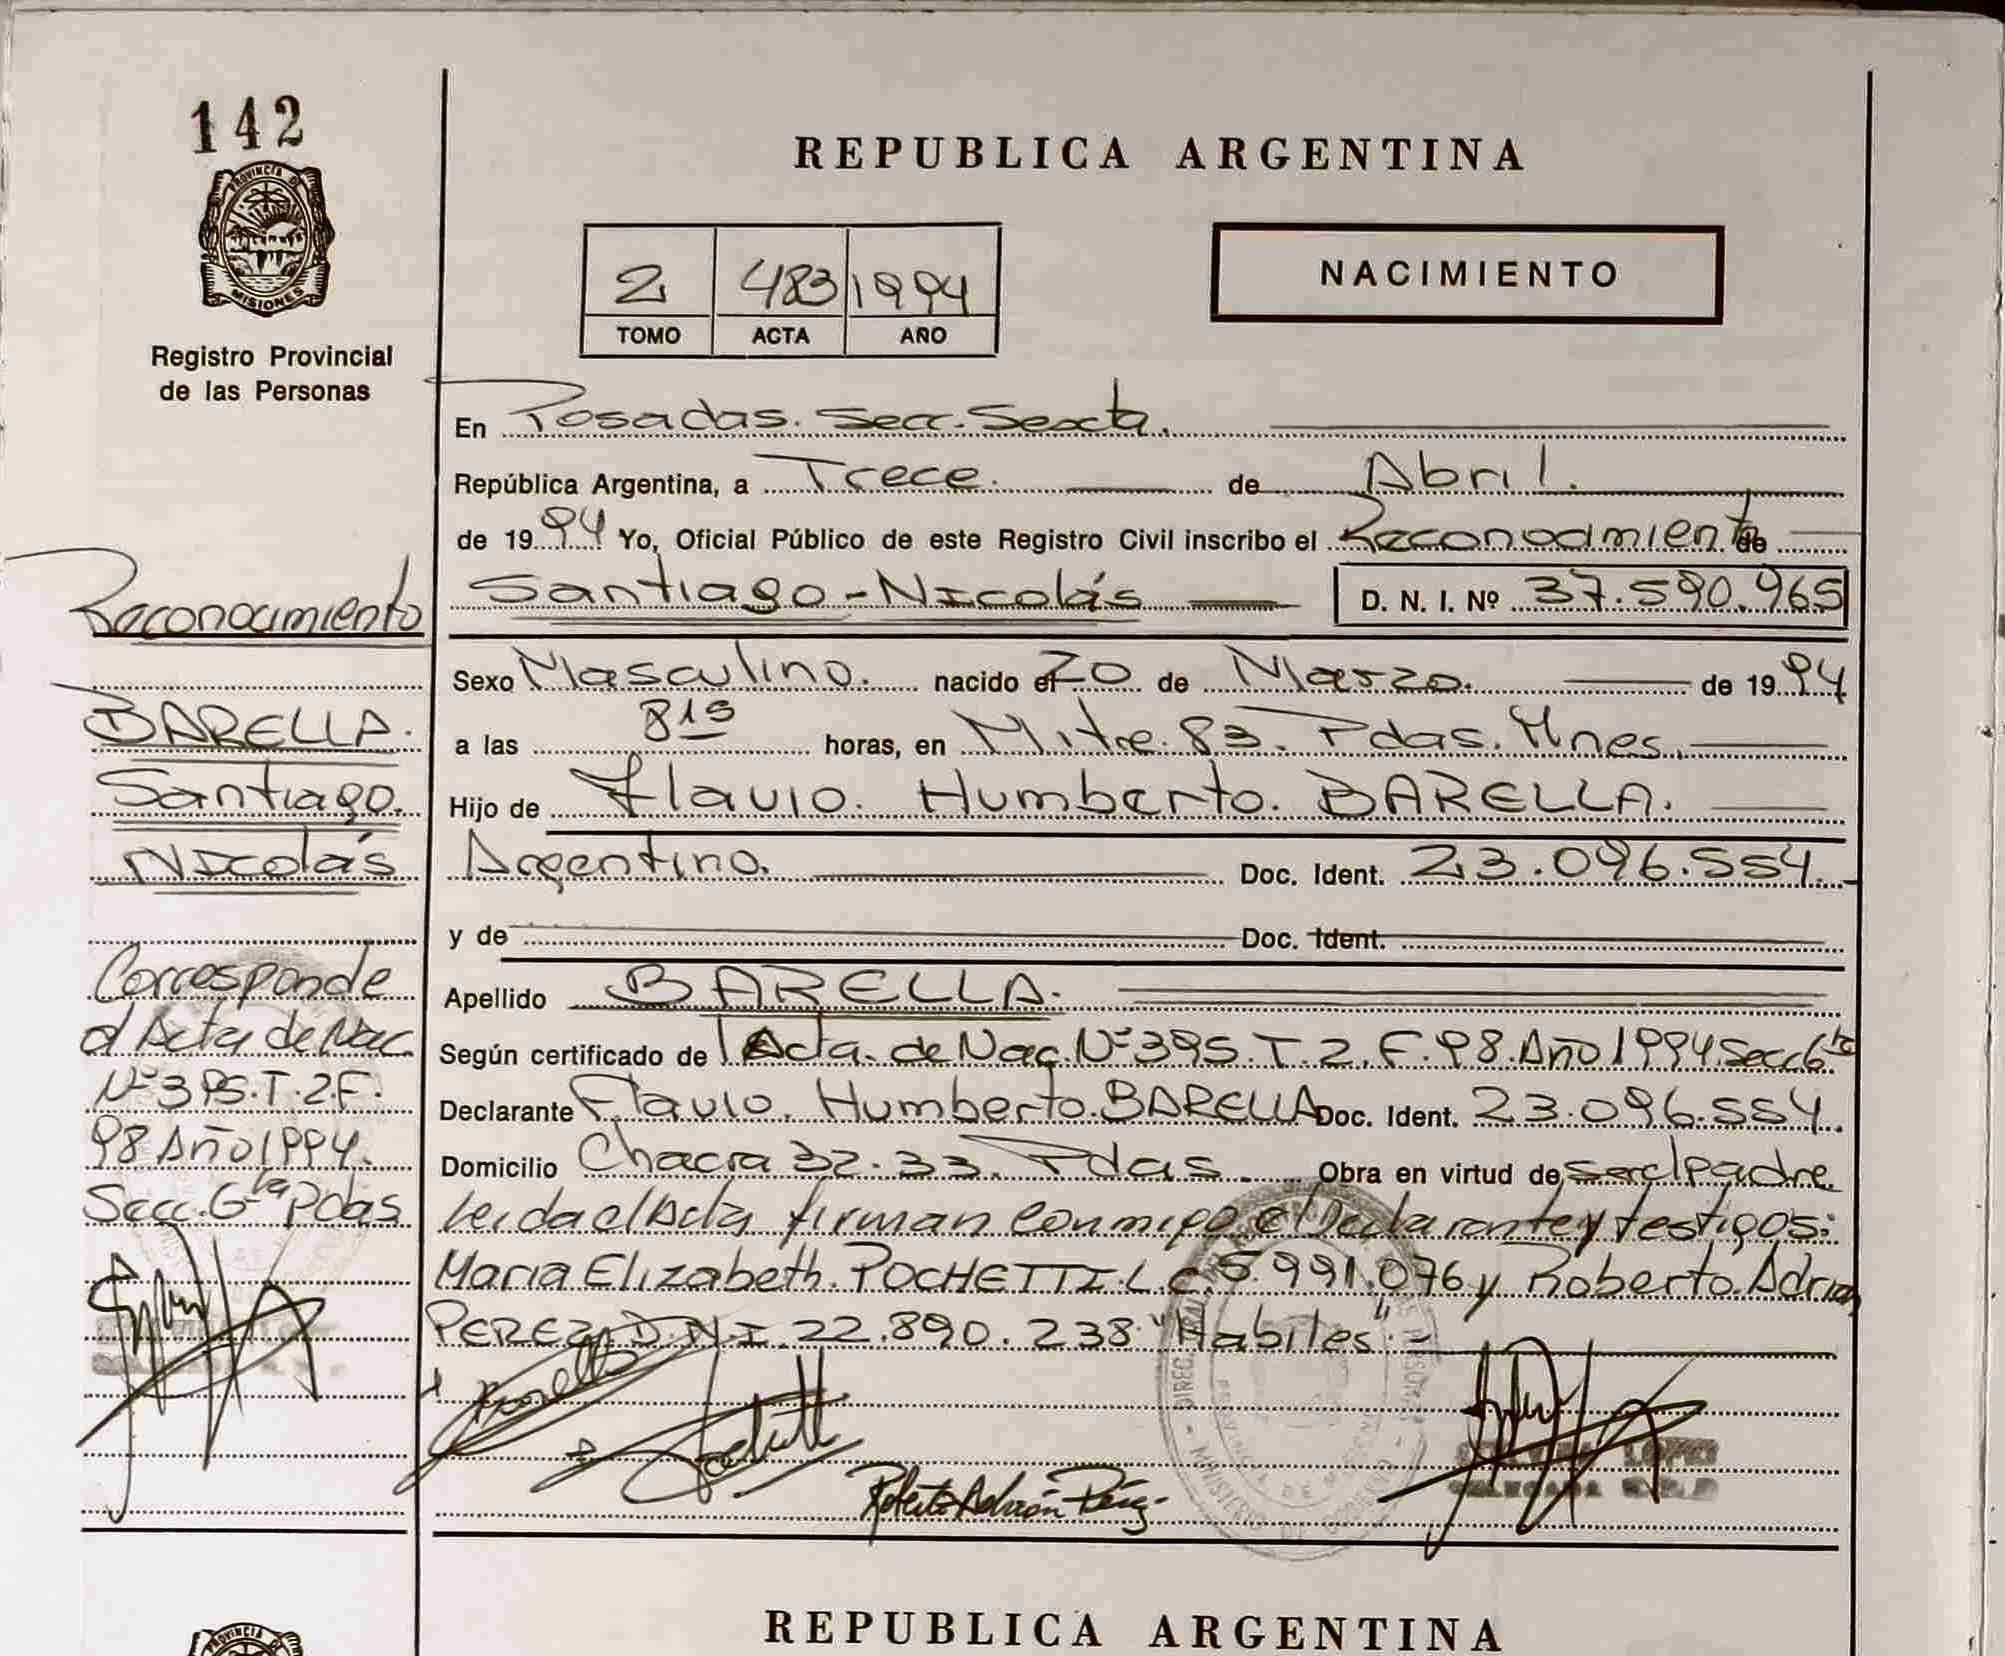 142
PROVINCIA DE
MISIONES
Registro Provincial
de las Personas
Reconocimiento
BARELLA.
Santiago.
Nicolás
Corresponde
al Acta de Nac
Nº 395.T.2.F.
98 Año 1994.
Secc. 6ta Pdas
REPUBLICA ARGENTINA
2 483 1994
TOMO ACTA AÑO
NACIMIENTO
En Posadas. Secc. Sexta.
República Argentina, a Trece. de Abril.
de 1994 Yo, Oficial Público de este Registro Civil inscribo el Reconocimiento de
Santiago-Nicolás D. N. I. Nº 37.590.965
Sexo Masculino. nacido el 20 de Marzo. de 1994
a las 815 horas, en Mitre. 83. Pdas. Mnes.
Hijo de Flavio. Humberto. BARELLA.
Argentino. Doc. Ident. 23.096.554.
y de Doc. Ident.
Apellido BARELLA.
Según certificado de Acta. de Nac. Nº 395. T. 2. F. 98. Año 1994. Secc 6ta
Declarante Flavio. Humberto. BARELLA Doc. Ident. 23.096.554.
Domicilio Chacra 32-33. Pdas. Obra en virtud de ser el padre.
Leida el Acta, firman conmigo el Declarante y testigos:
Maria Elizabeth. POCHETTI. L.C. 5.991.076 y Roberto. Adrian
PEREZ. D.N.I. 22.890.238 "Habiles".-
Roberto Adrián Pérez.
MINISTERIO DE GOBIERNO
LOPEZ
DELEGADA
REPUBLICA ARGENTINA
PROVINCIA DE